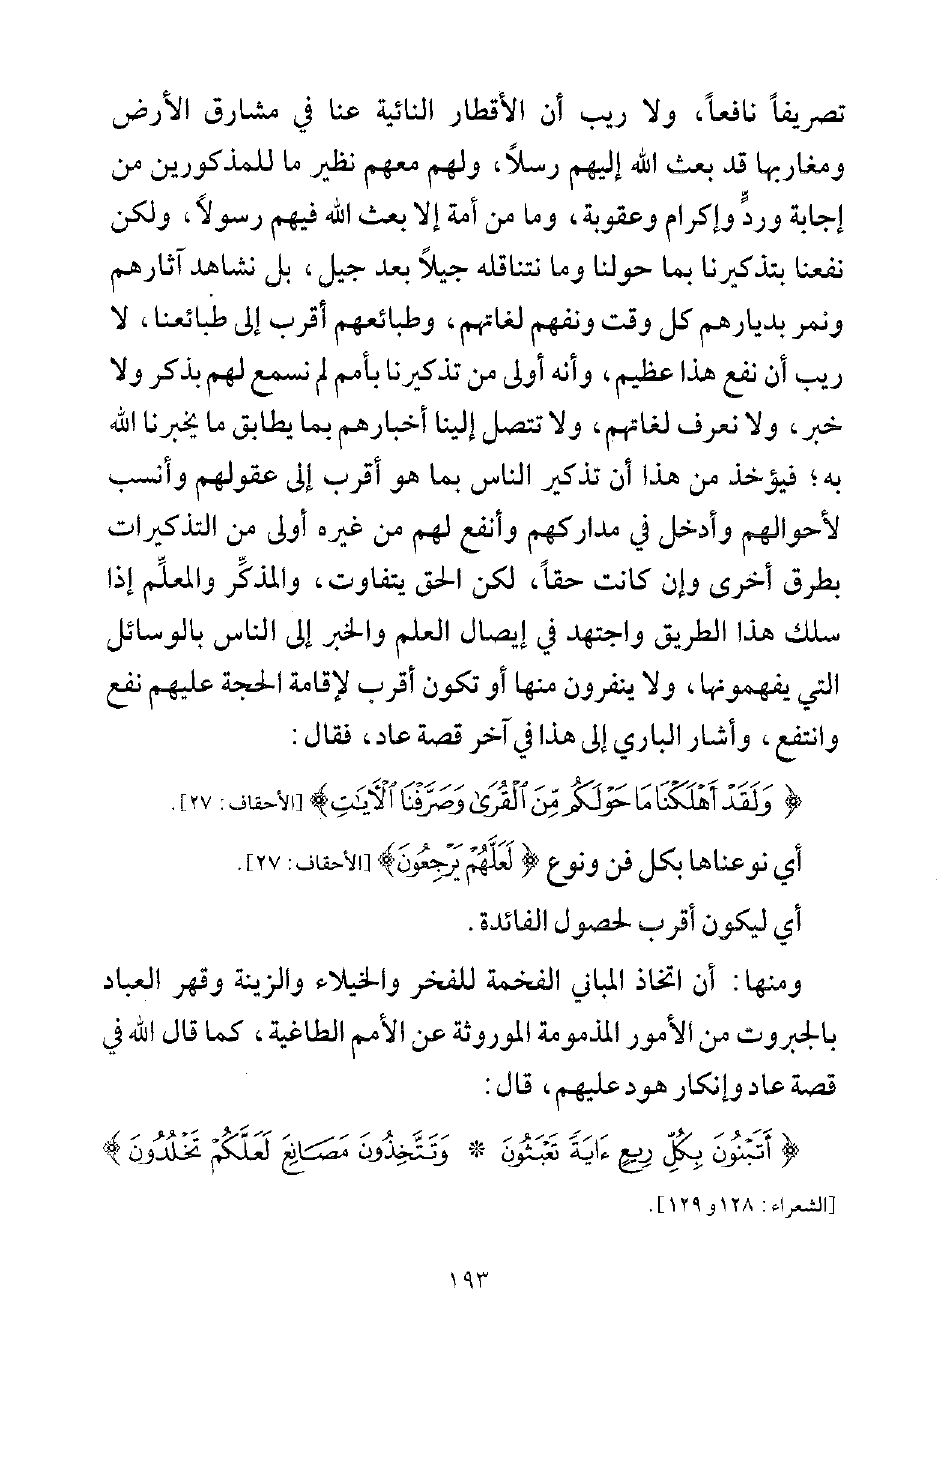 تصريفاً نافعاً، ولا ريب أن الأقطار النائية عنا في مشارق الأرض
ومغاربها قد بعث الله إليهم رسلاً، ولهم معهم نظير ما للمذكورين من
إجابة وردٍّ وإكرام وعقوبة، وما من أمة إلا بعث الله فيهم رسولاً، ولكن
نفعنا بتذكيرنا بما حولنا وما نتناقله جيلاً بعد جيل، بل نشاهد آثارهم
ونمر بديارهم كل وقت ونفهم لغاتهم، وطبائعهم أقرب إلى طبائعنا، لا
ريب أن نفع هذا عظيم، وأنه أولى من تذكيرنا بأمم لم نسمع لهم بذكر ولا
خبر، ولا نعرف لغاتهم، ولا تتصل إلينا أخبارهم بما يطابق ما يخبرنا الله
به؛ فيؤخذ من هذا أن تذكير الناس بما هو أقرب إلى عقولهم وأنسب
لأحوالهم وأدخل في مداركهم وأنفع لهم من غيره أولى من التذكيرات
بطرق أخرى وإن كانت حقاً، لكن الحق يتفاوت، والمذكِّر والمعلِّم إذا
سلك هذا الطريق واجتهد في إيصال العلم والخبر إلى الناس بالوسائل
التي يفهمونها، ولا ينفرون منها أو تكون أقرب لإقامة الحجة عليهم نفع
وانتفع، وأشار الباري إلى هذا في آخر قصة عاد، فقال:
﴿ وَلَقَدْ أَهْلَكْنَا مَا حَوْلَكُم مِّنَ ٱلْقُرَىٰ وَصَرَّفْنَا ٱلْآيَٰتِ ﴾ [الأحقاف: ٢٧].
أي نوعناها بكل فن ونوع ﴿ لَعَلَّهُمْ يَرْجِعُونَ ﴾ [الأحقاف: ٢٧].
أي ليكون أقرب لحصول الفائدة.
ومنها: أن اتخاذ المباني الفخمة للفخر والخيلاء والزينة وقهر العباد
بالجبروت من الأمور المذمومة الموروثة عن الأمم الطاغية، كما قال الله في
قصة عاد وإنكار هود عليهم، قال:
﴿ أَتَبْنُونَ بِكُلِّ رِيعٍ ءَايَةً تَعْبَثُونَ * وَتَتَّخِذُونَ مَصَانِعَ لَعَلَّكُمْ تَخْلُدُونَ ﴾
[الشعراء: ١٢٨ و ١٢٩].
١٩٣